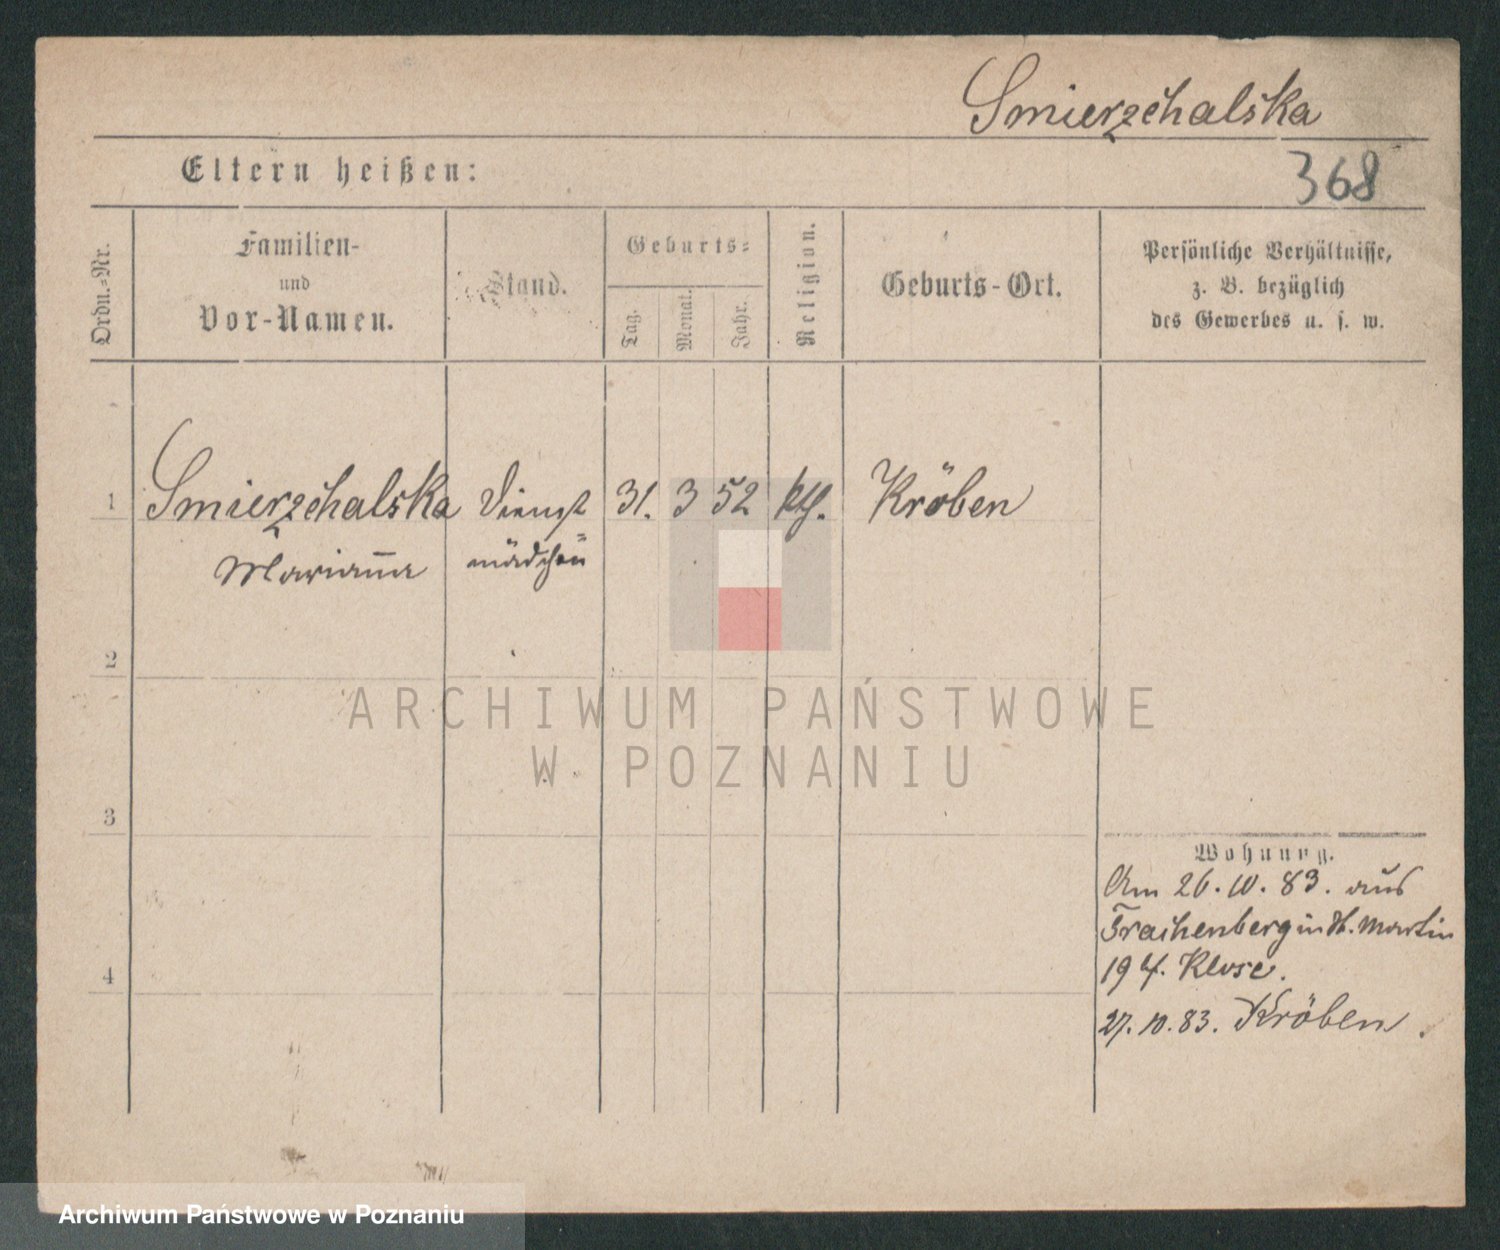 Smierzchalska
Eltern heißen:
368
Ordn.-Nr.
Familien-
und
Vor-Namen.
Stand.
Geburts-
Tag.
Monat.
Jahr.
Religion.
Geburts-Ort.
Persönliche Verhältnisse,
z. B. bezüglich
des Gewerbes u. s. w.
1
Smierzchalska Dienst 31. 3 52 kth. Kröben
Marianna mädchen
2
ARCHIWUM PAŃSTWOWE
W POZNANIU
3
Wohnung.
Am 26.10.83. aus
Trachenberg in St. Martin
19 Klose.
4
27.10.83. Kröben.
Archiwum Państwowe w Poznaniu